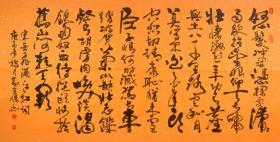 怒髮衝冠憑欄處瀟
瀟雨歇抬望眼仰天長嘯
壯懷激烈三十功名塵
與土八千里路雲和月
莫等閑白了少年頭
空悲切靖康恥猶未雪
臣子恨何時滅駕長車
踏破賀蘭山缺壯志飢
餐胡虜肉笑談渴
飲匈奴血待從頭收拾
舊山河朝天闕
宋岳飛滿江紅詞